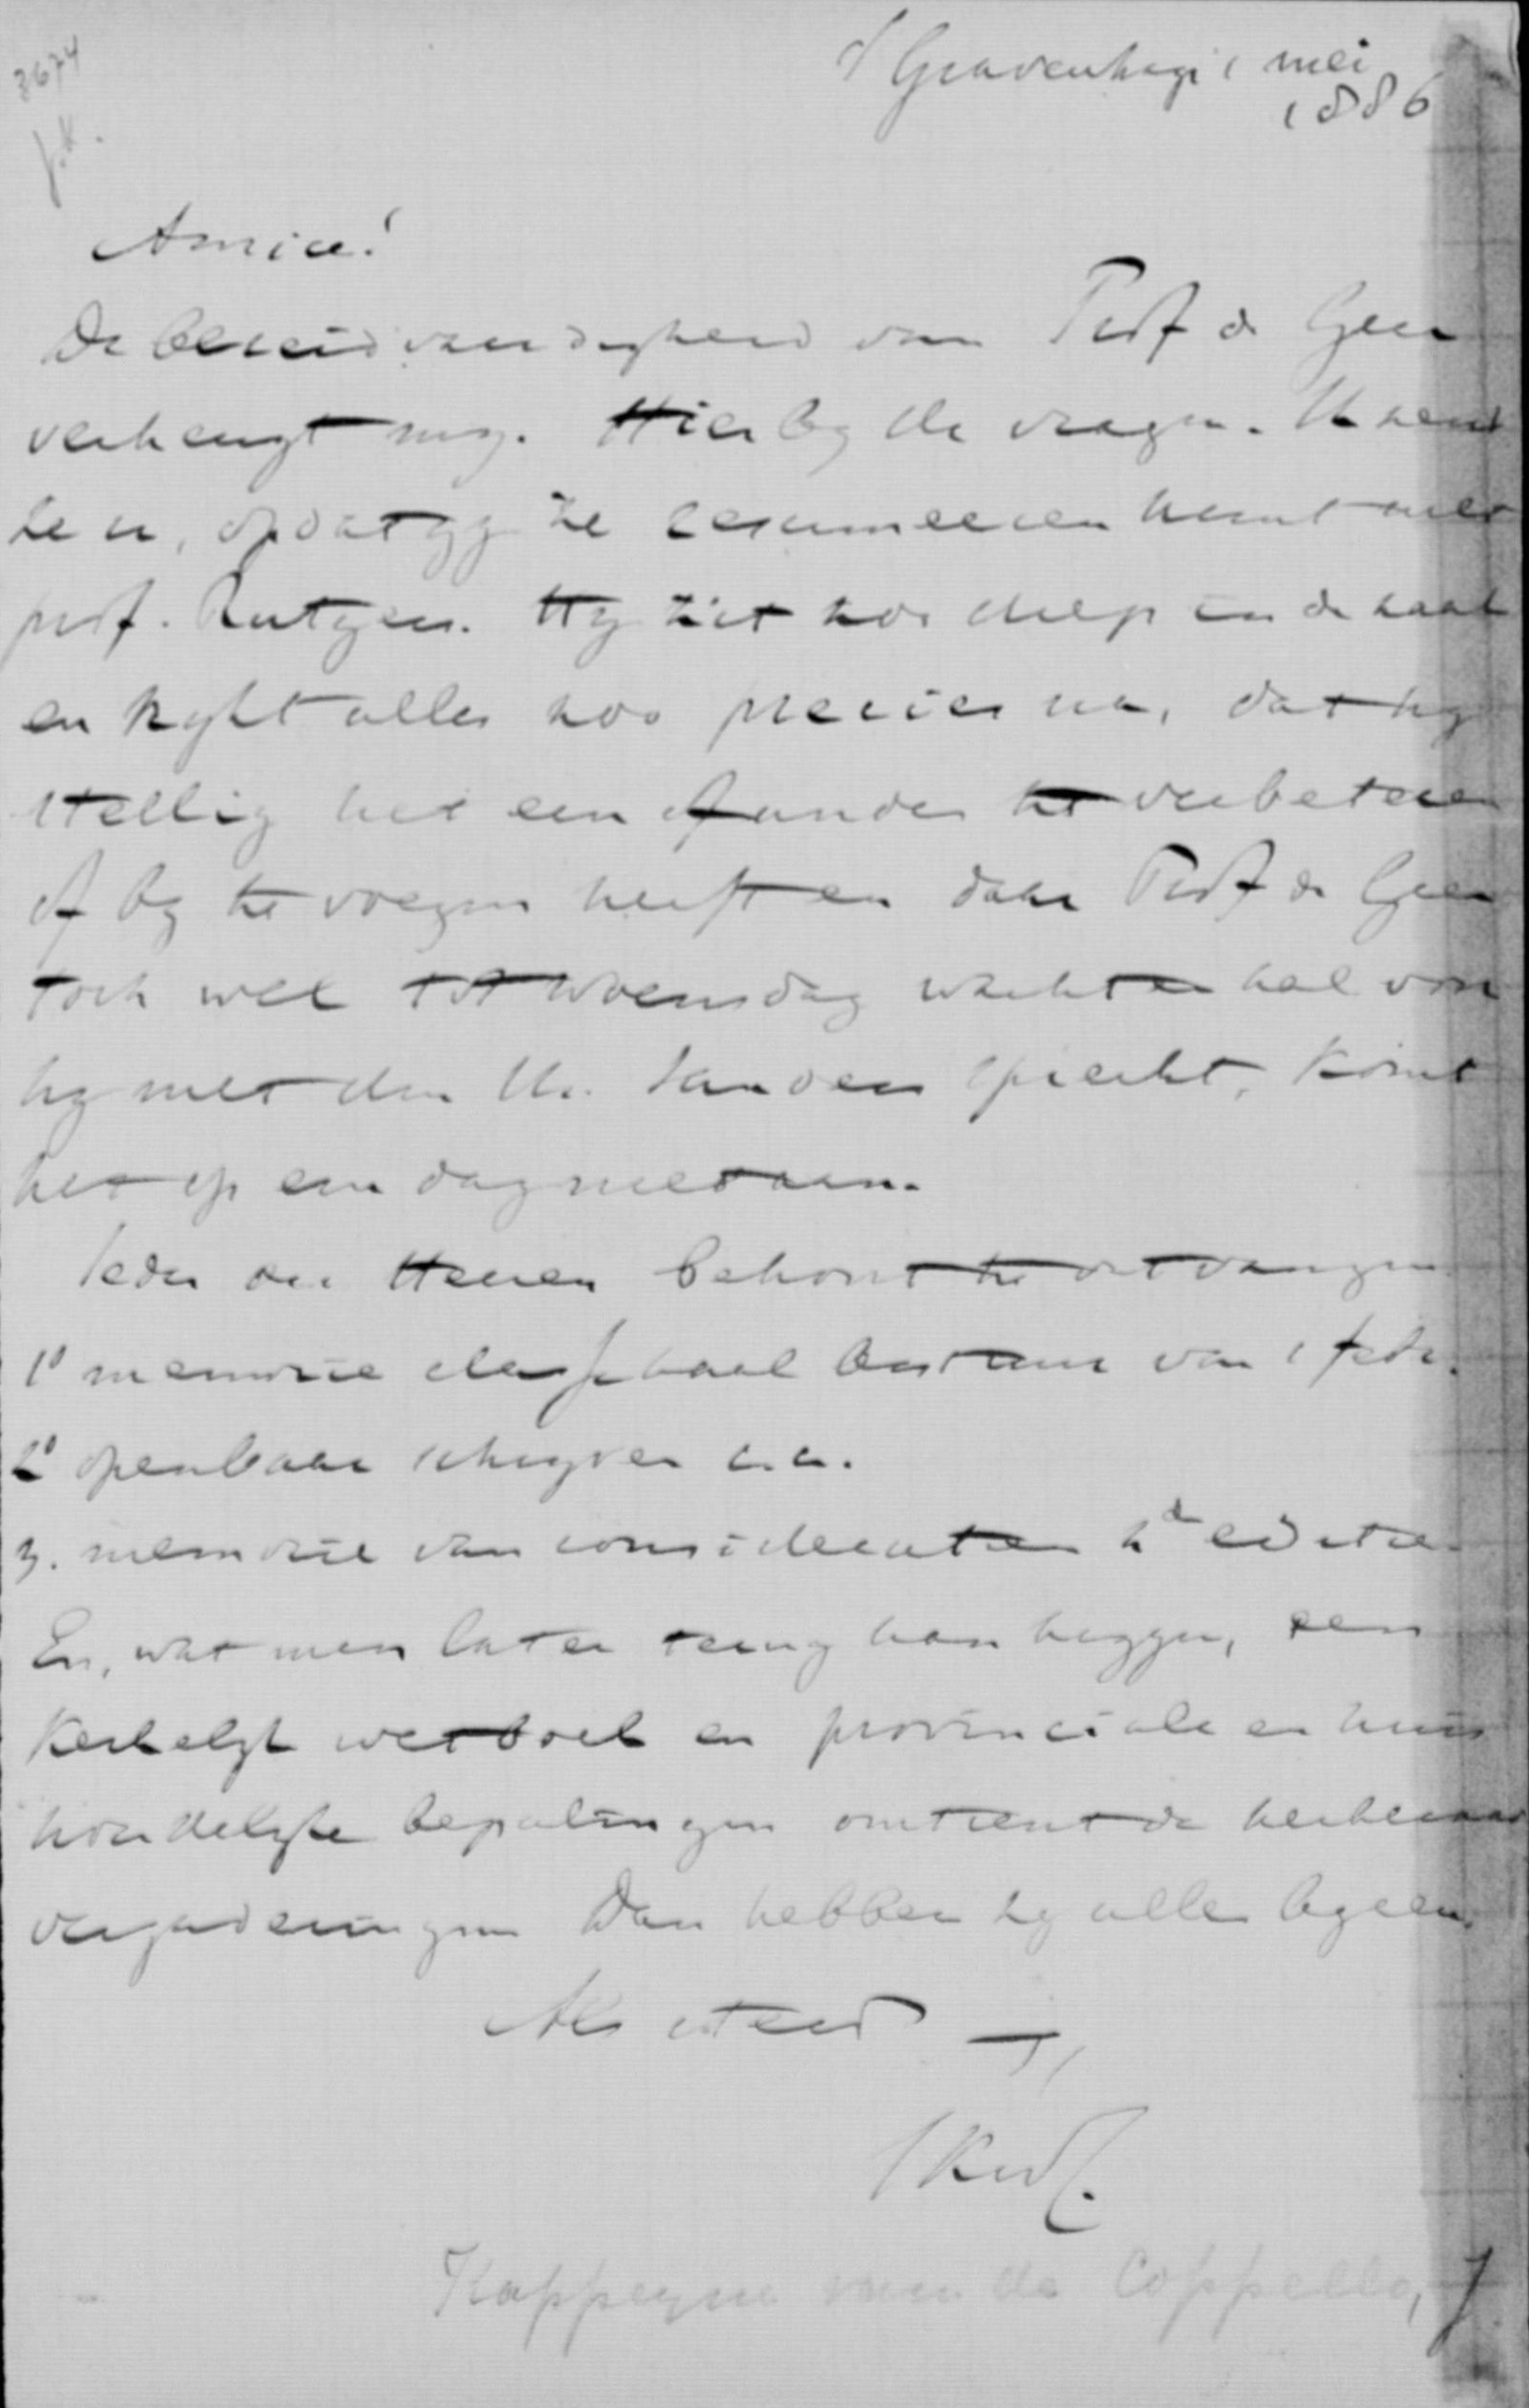 3674
J.K.
'S Gravenhage 1 mei
1886
Amice!
De bereidvaardigheid van Prof de Geer
verheugt my. Hierby de vragen. Ik zend
ze u, opdat gy ze resumeeren kunt met
prof. Rutgers. Hy zit zoo diep in de zaak
en kykt alles zoo precies na, dat hy
stellig het een of ander te verbeteren
of by te voegen heeft en daar Prof de Geer
toch wel tot Woensdag wachten zal voor
hy met den Hr. spreekt, komt
het op een dag niet aan.
Ieder der Heeren behoort te ontvangen
1° memorie classikaal bestuur van 1 febr.
2° openbaar schryven
3. memorie van consideratien 2de editie
En, wat men later terug kan krygen, een
Kerkelyk wetboek en provinciale en huis
houdelyke bepalingen omtrent de kerkeraads
vergaderingen Dan hebben zy alles byeen.
Als steeds
JKvdC.
Kappeyne van de Coppello, J